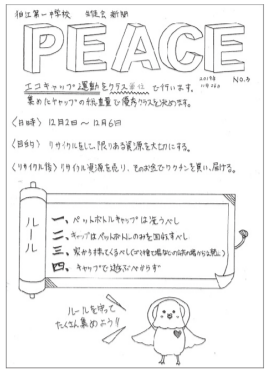 狛江第一中学校 生徒会新聞
PEACE
2019年
11月26日
NO.4
エコキャップ運動をクラス単位で行います。
集めたキャップの総重量で優秀クラスを決めます。
〈日時〉 12月2日〜12月6日
〈目的〉 リサイクルをして、限りある資源を大切にする。
〈リサイクル後〉リサイクル資源を売り、そのお金でワクチンを買い、届ける。
ルール
一、ペットボトルキャップは洗うべし
二、キャップはペットボトルのみを回収すべし
三、家から持ってくるべし
四、キャップで遊ぶべからず
ルールを守って
たくさん集めよう!!